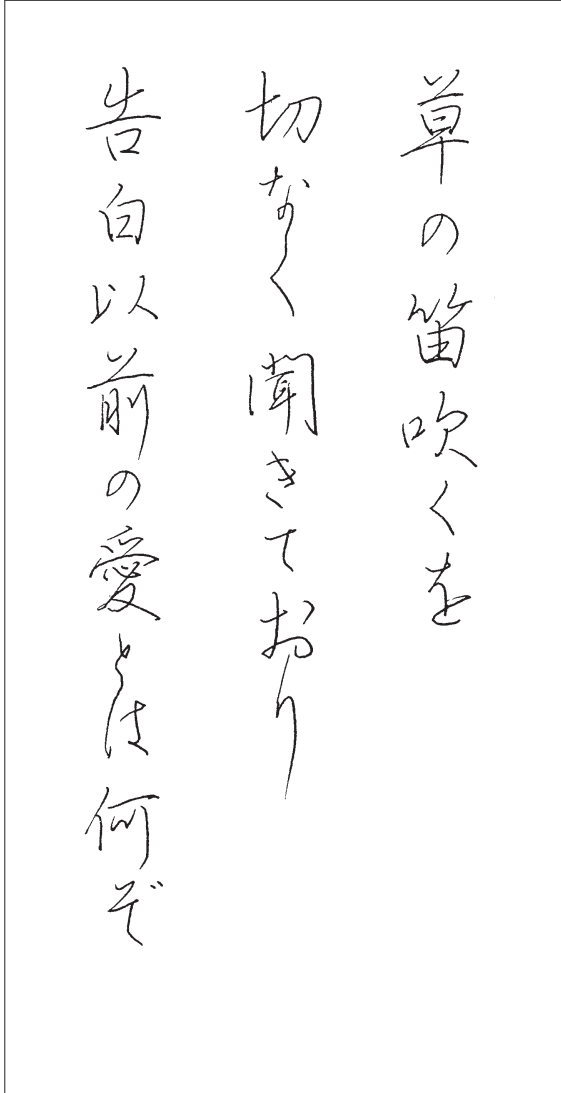 草の笛吹くを
切なく聞きており
告白以前の愛とは何ぞ